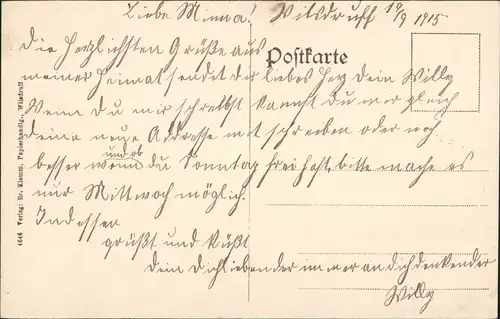 Liebe Minna! Wilsdruff 19/9 1915
Die herzlichsten Grüße aus
Postkarte
meiner Heimat sendet dir liebes Herz Dein Willy
Wenn Du mir schreibst kannst Du mir gleich
deine neue Addresse mit schreiben oder noch
und ob
besser wenn du Sonntag frei hast, bitte mache es
nur Mittwoch möglich.
Indessen
grüßt und küßt
Dein Dich liebender immer an dich denkender
Willy
4644 Verlag: Br. Klemm, Papierhandlg., Wilsdruff